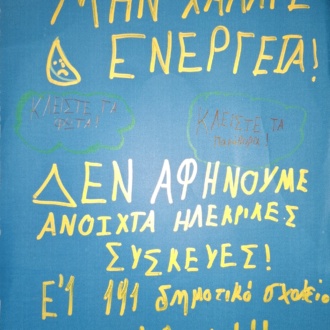 ΜΗΝ ΧΑΛΑΤΕ
ΕΝΕΡΓΕΙΑ!
ΚΛΕΙΣΤΕ ΤΑ
ΦΩΤΑ!
ΚΛΕΙΣΤΕ ΤΑ
ΔΕΝ ΑΦΗΝΟΥΜΕ
ΑΝΟΙΧΤΑ ΗΛΕΚΡΙΚΕΣ
ΣΥΣΚΕΥΕΣ!
Ε'1 191 δημοτικό σχολείο